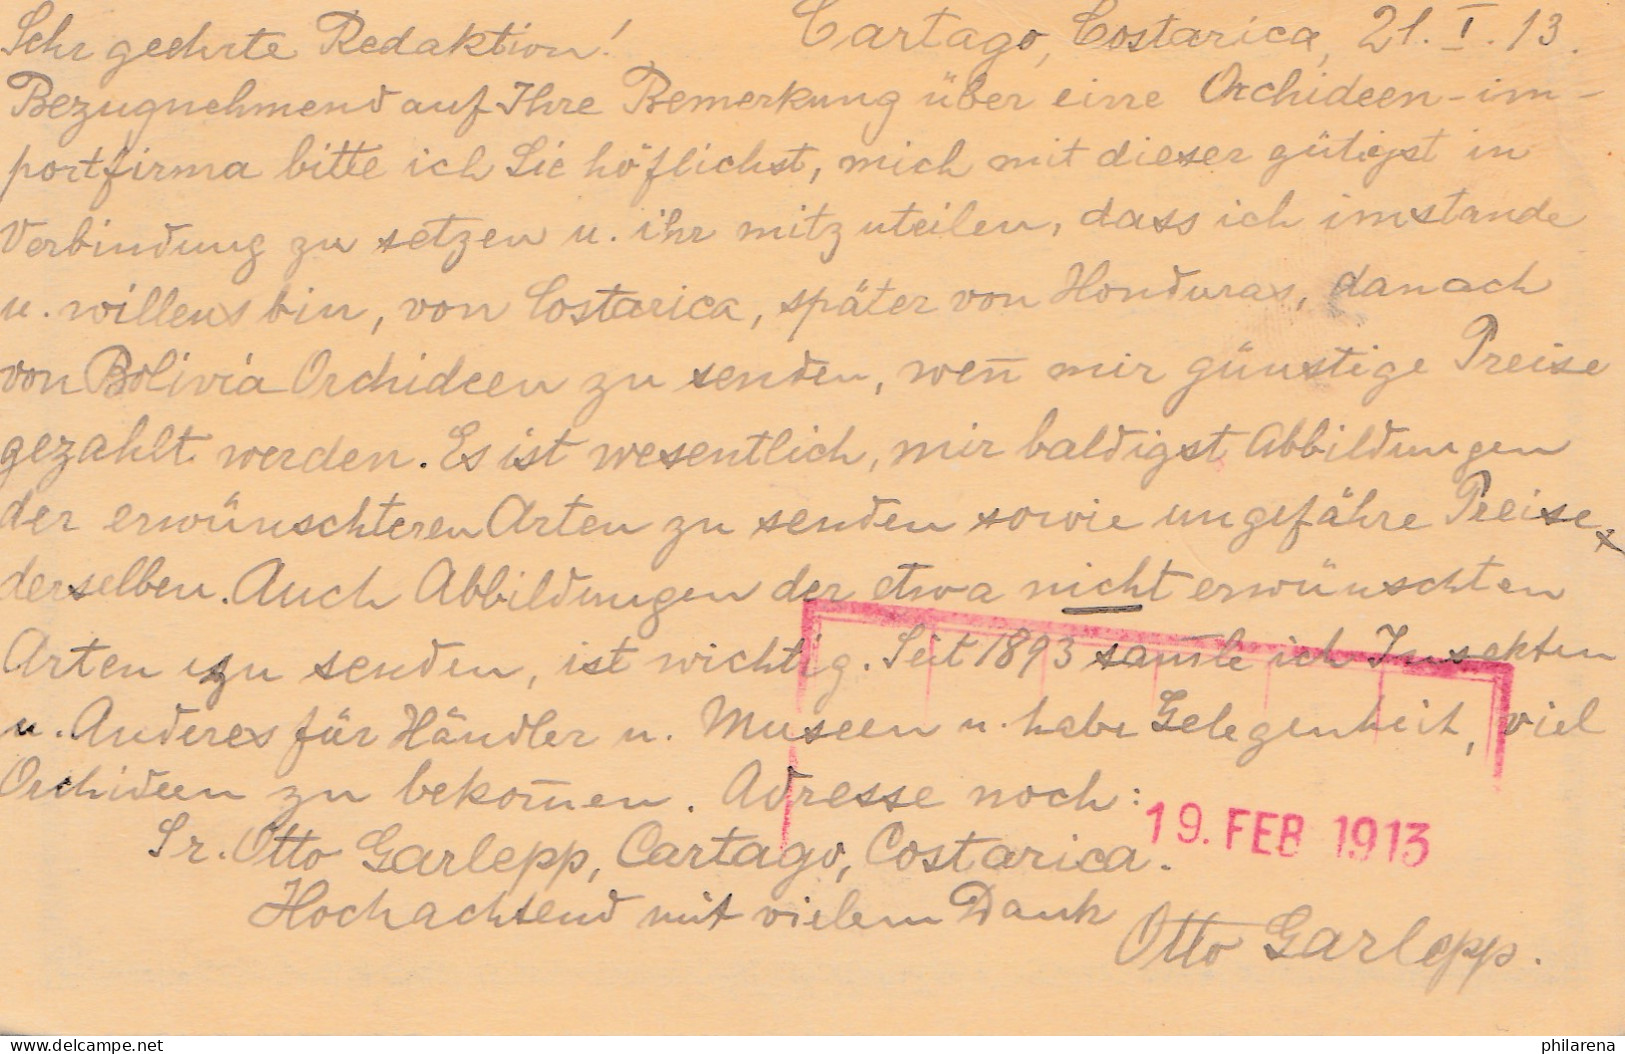 Sehr geehrte Redaktion! Cartago, Costarica, 21. I. 13.
Bezugnehmend auf Ihre Bemerkung über eine Orchideen-im-
portfirma bitte ich Sie höflichst, mich mit dieser gütigst in
Verbindung zu setzen u. ihr mitzuteilen, dass ich imstande
u. willens bin, von Costarica, später von Honduras, danach
von Bolivia Orchideen zu senden, wen̄ mir günstige Preise
gezahlt werden. Es ist wesentlich, mir baldigst Abbildungen
der erwünschteren Arten zu senden sowie ungefähre Preise
derselben. Auch Abbildungen der etwa nicht erwünschten
Arten zu senden, ist wichtig. Seit 1893 sam̄le ich Insekten
u. Anderes für Händler u. Museen u. habe Gelegenheit, viel
Orchideen zu bekom̄en. Adresse noch:
19. FEB 1913
Sr. Otto Garlepp, Cartago, Costarica.
Hochachtend mit vielem Dank
Otto Garlepp.
www.delcampe.net
philarena